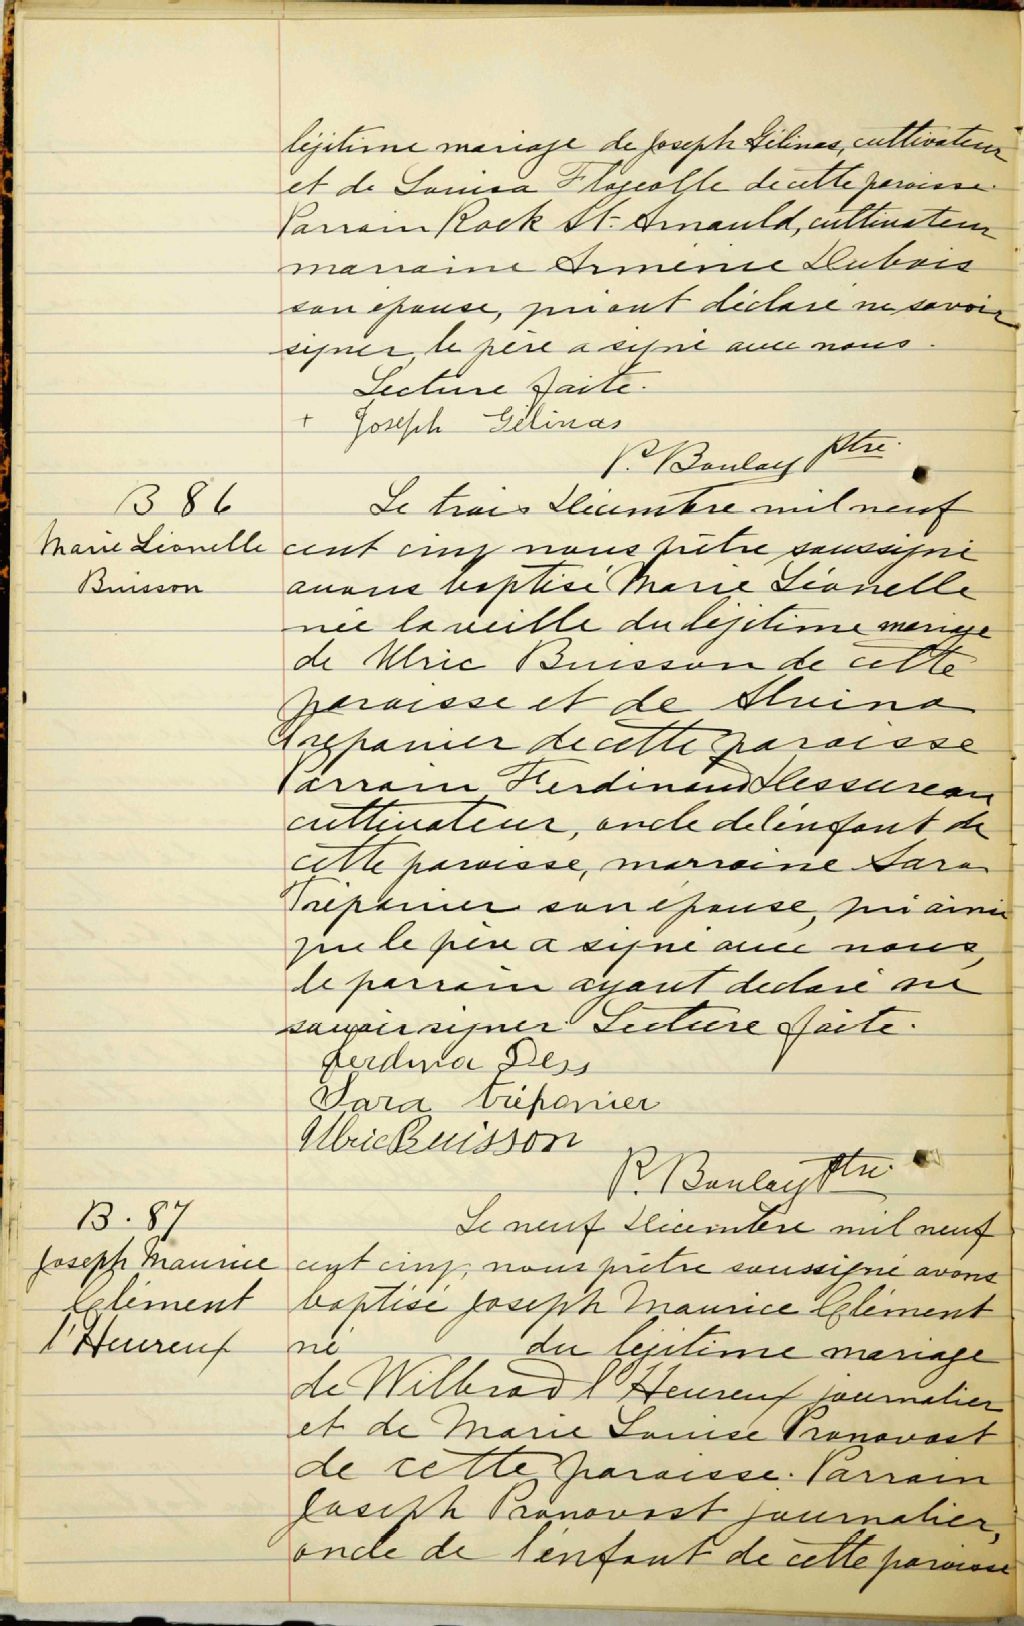 légitime mariage de Joseph Gélinas, cultivateur
et de Louisa Flageolle de cette paroisse.
Parrain Rock St. Arnauld, cultivateur
marraine Arménie Dubois
son épouse, qui ont déclaré ne savoir
signer, le père a signé avec nous.
Lecture faite.
+ Joseph Gélinas
P. Boulay Ptre.
B 86
Marie Léonelle
Buisson
Le trois Décembre mil neuf
cent cinq nous prêtre soussigné
avons baptisé Marie Léonelle
née la veille du légitime mariage
de Ulric Buisson de cette
paroisse et de Alvina
Trépanier de cette paroisse
Parrain Ferdinand Dessureau
cultivateur, oncle de l'enfant de
cette paroisse, marraine Sara
Trépanier son épouse, qui ainsi
que le père a signé avec nous,
le parrain ayant declaré ne
savoir signer Lecture faite.
Ferdina Dess
Sara trépanier
Ulric Buisson
P. Boulay Ptre.
B. 87
Joseph Maurice
Clément
l'Heureux
Le neuf Décembre mil neuf
cent cinq, nous prêtre soussigné avons
baptisé Joseph Maurice Clément
né du légitime mariage
de Wilbrod l'Heureux journalier
et de Marie Louise Pronovost
de cette paroisse. Parrain
Joseph Pronovost journalier,
oncle de l'enfant de cette paroisse